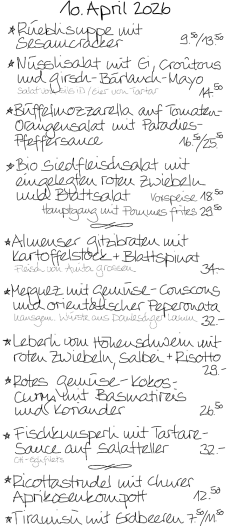 10. April 2026
* Rüeblisuppe mit
Sesamcracker 9.50/13.50
* Nüsslisalat mit Ei, Croûtons
und Girsch-Bärlauch-Mayo
14.-
* Büffelmozzarella auf Tomaten-
Orangensalat mit Paradies-
Pfeffersauce 16.50/25.50
* Bio Siedfleischsalat mit
eingelegten roten Zwiebeln
und Blattsalat Vorspeise 18.50
Hauptgang mit Pommes frites 29.50
* Almenser Gitzibraten mit
Kartoffelstock + Blattspinat
Fleisch von 34.-
* Merguez mit Gemüse-Couscous
und orientalischer Peperonata
32.-
* Leberli vom Höhenschwein mit
roten Zwiebeln, Salbei + Risotto
29.-
* Rotes Gemüse-Kokos-
Curry mit Basmatireis
und Koriander 26.50
* Fischknusperli mit Tartare-
Sauce auf Salatteller 32.-
* Ricottastrudel mit Churer
Aprikosenkompott 12.50
* Tiramisù mit Erdbeeren 7.50/11.50